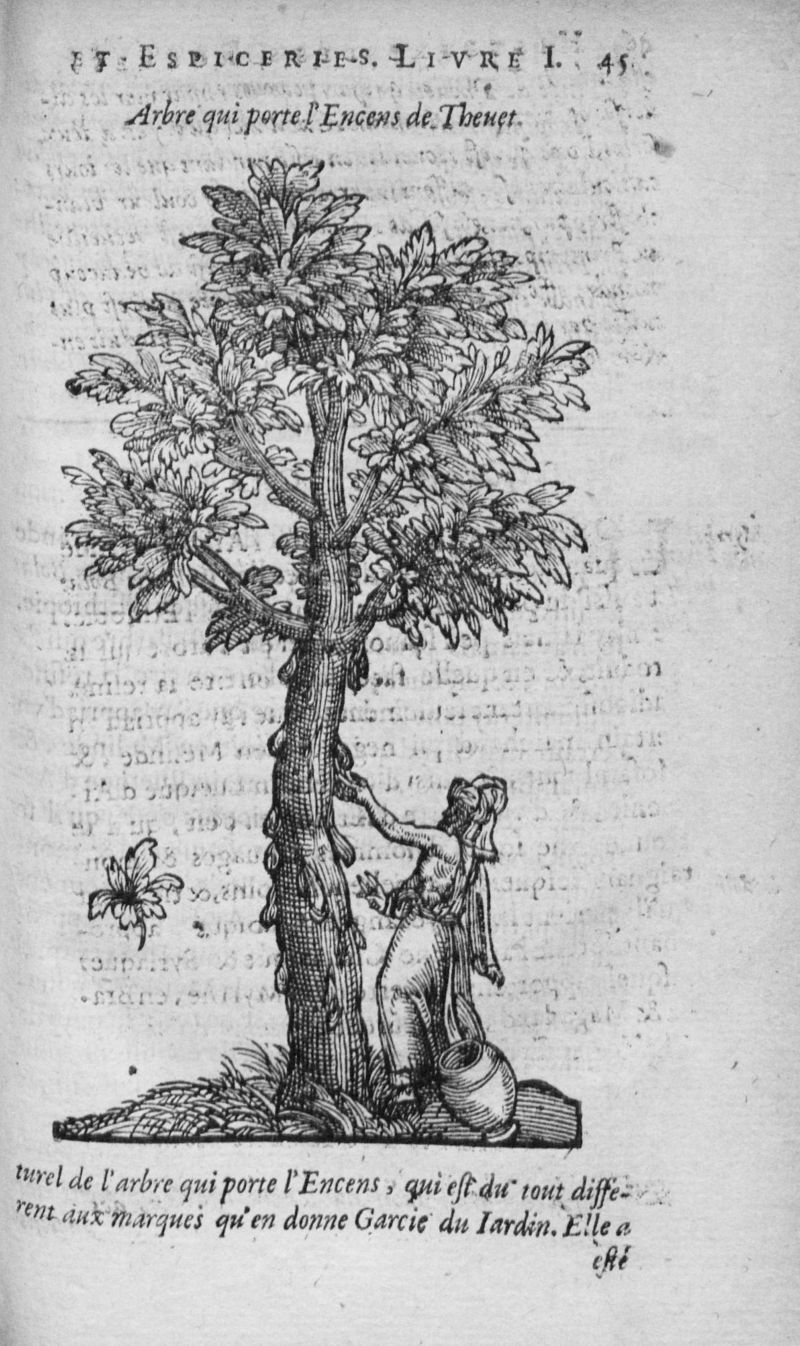 ET ESPICERIES. LIVRE I. 45
Arbre qui porte l'Encens de Theuet.
turel de l'arbre qui porte l'Encens, qui est du tout diffe-
rent aux marques qu'en donne Garcie du Iardin. Elle a
esté